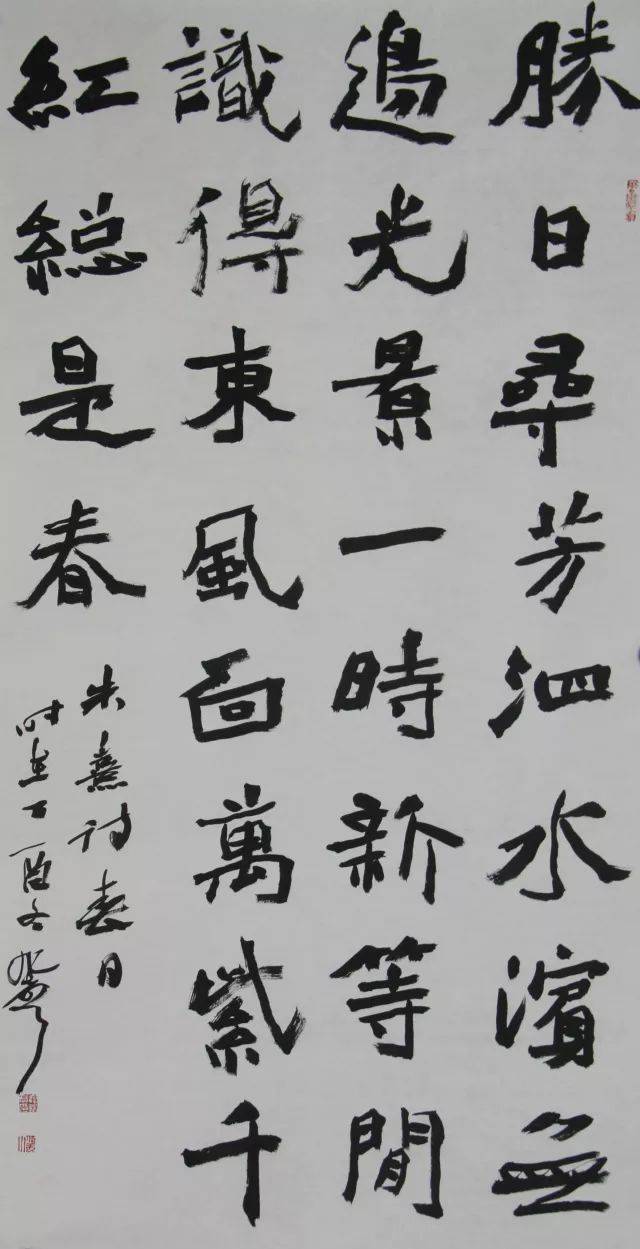 勝日尋芳泗水濱無
邊光景一時新等閒
識得東風面萬紫千
紅總是春
朱熹诗春日
时在丁酉冬